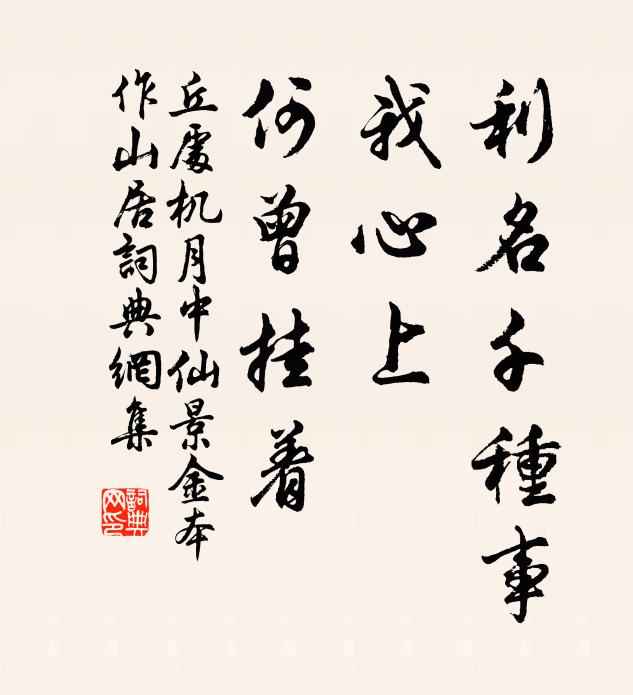 利名千種事
我心上
何曾挂着
丘處机月中仙景金本
作山居詞典網集
詞典網印